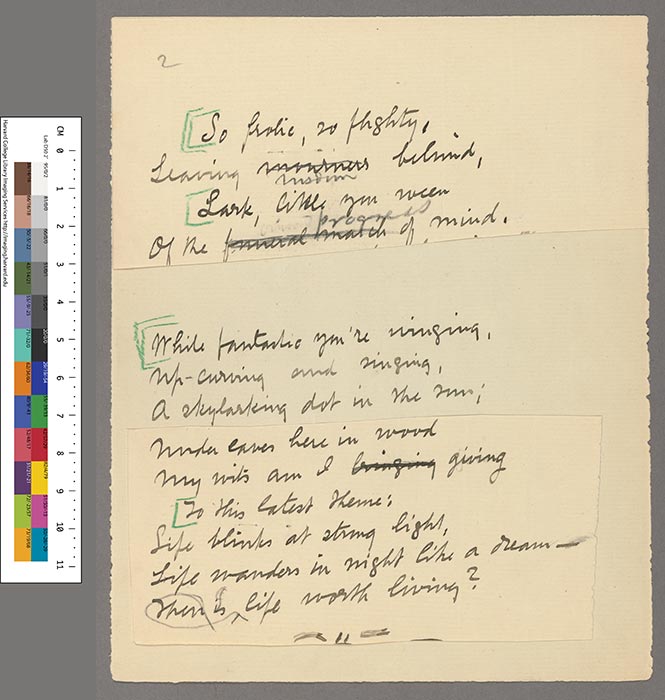 2
So frolic, so flighty,
Leaving mourners behind,
wisdom
Lark, little you ween
progress
Of the funeral march of mind.
While fantastic you're winging,
Up-curving and singing,
A skylarking dot in the sun;
Under eaves here in wood
My wits am I bringing giving
To this latest theme:
Life blinks at strong light,
Life wanders in night like a dream—
Then is life worth living?
CM 0 1 2 3 4 5 6 7 8 9 10 11
Harvard College Library Imaging Services